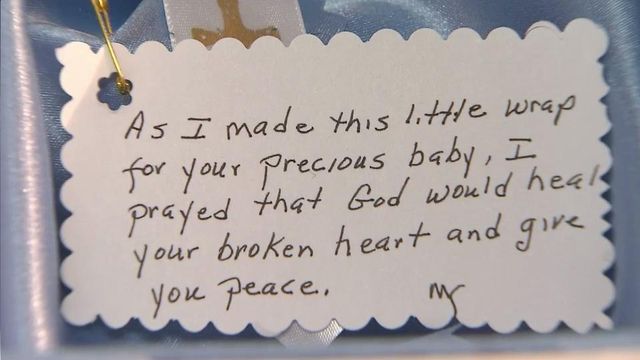 As I made this little wrap
for your precious baby, I
prayed that God would heal
your broken heart and give
you peace.